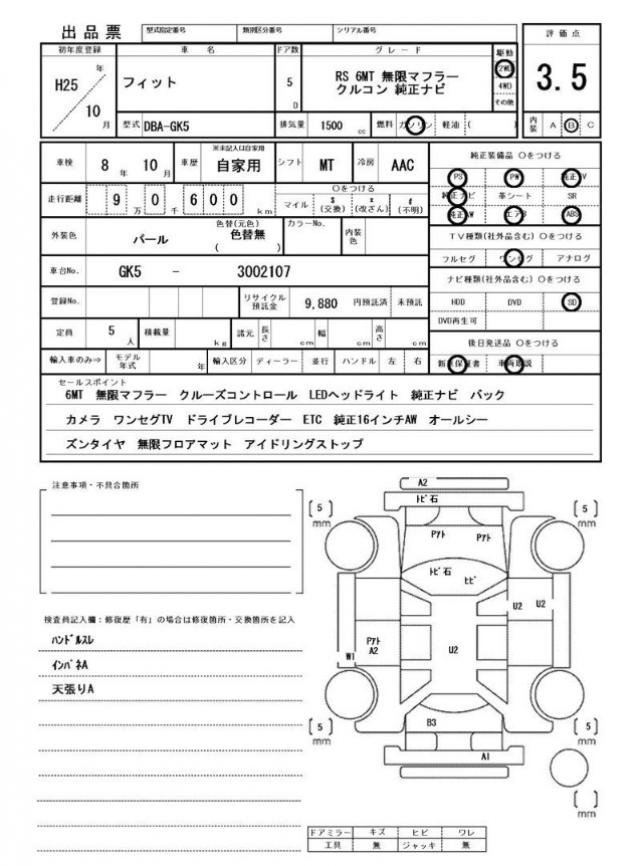 出品票 型式指定番号 類別区分番号 シリアル番号 評価点
初年度登録 車名 ドア数 グレード 駆動
H25 年 10 月 フィット 5 D RS 6MT 無限マフラー
クルコン 純正ナビ
2WD 4WD その他 3.5
型式 DBA-GK5 排気量 1500 cc 燃料 ガソリン 軽油 ( ) 内装 A B C
車検 8 年 10 月 車歴 ※未記入は自家用 自家用 シフト MT 冷房 AAC
純正装備品 〇をつける
PS PW 純正TV
純正ナビ 革シート SR
純正AW エアB ABS
走行距離 9 万 0 千 600 km 〇をつける
マイル $ (交換) × (改ざん) # (不明)
外装色 パール 色替(元色) 色替無 ( ) カラーNo. 内装色
TV種類(社外品含む) 〇をつける
フルセグ ワンセグ アナログ
車台No. GK5 - 3002107
ナビ種類(社外品含む) 〇をつける
HDD DVD SD
DVD再生可
登録No. リサイクル預託金 9,880 円預託済 未預託
定員 5 人 積載量 kg 諸元 長さ cm 幅 cm 高さ cm
後日発送品 〇をつける
新車保証書 車両取説
輸入車のみ⇒ モデル年式 年 輸入区分 ディーラー 並行 ハンドル 左 右
セールスポイント
6MT 無限マフラー クルーズコントロール LEDヘッドライト 純正ナビ バック
カメラ ワンセグTV ドライブレコーダー ETC 純正16インチAW オールシー
ズンタイヤ 無限フロアマット アイドリングストップ
注意事項・不具合箇所
検査員記入欄:修復歴「有」の場合は修復箇所・交換箇所を記入
ﾊﾝﾄﾞﾙｽﾚ
ｲﾝﾊﾟﾈA
天張りA
A2
ﾄﾋﾞ石
[5] mm
[5] mm
Pｱﾄ Pｱﾄ
ﾄﾋﾞ石
ﾋﾋﾞ
U2 U2
Pｱﾄ
A2
U2
W1
B3
A1
[5] mm
[5] mm
[ ] mm
ドアミラー キズ ヒビ ワレ
工具 無 ジャッキ 無